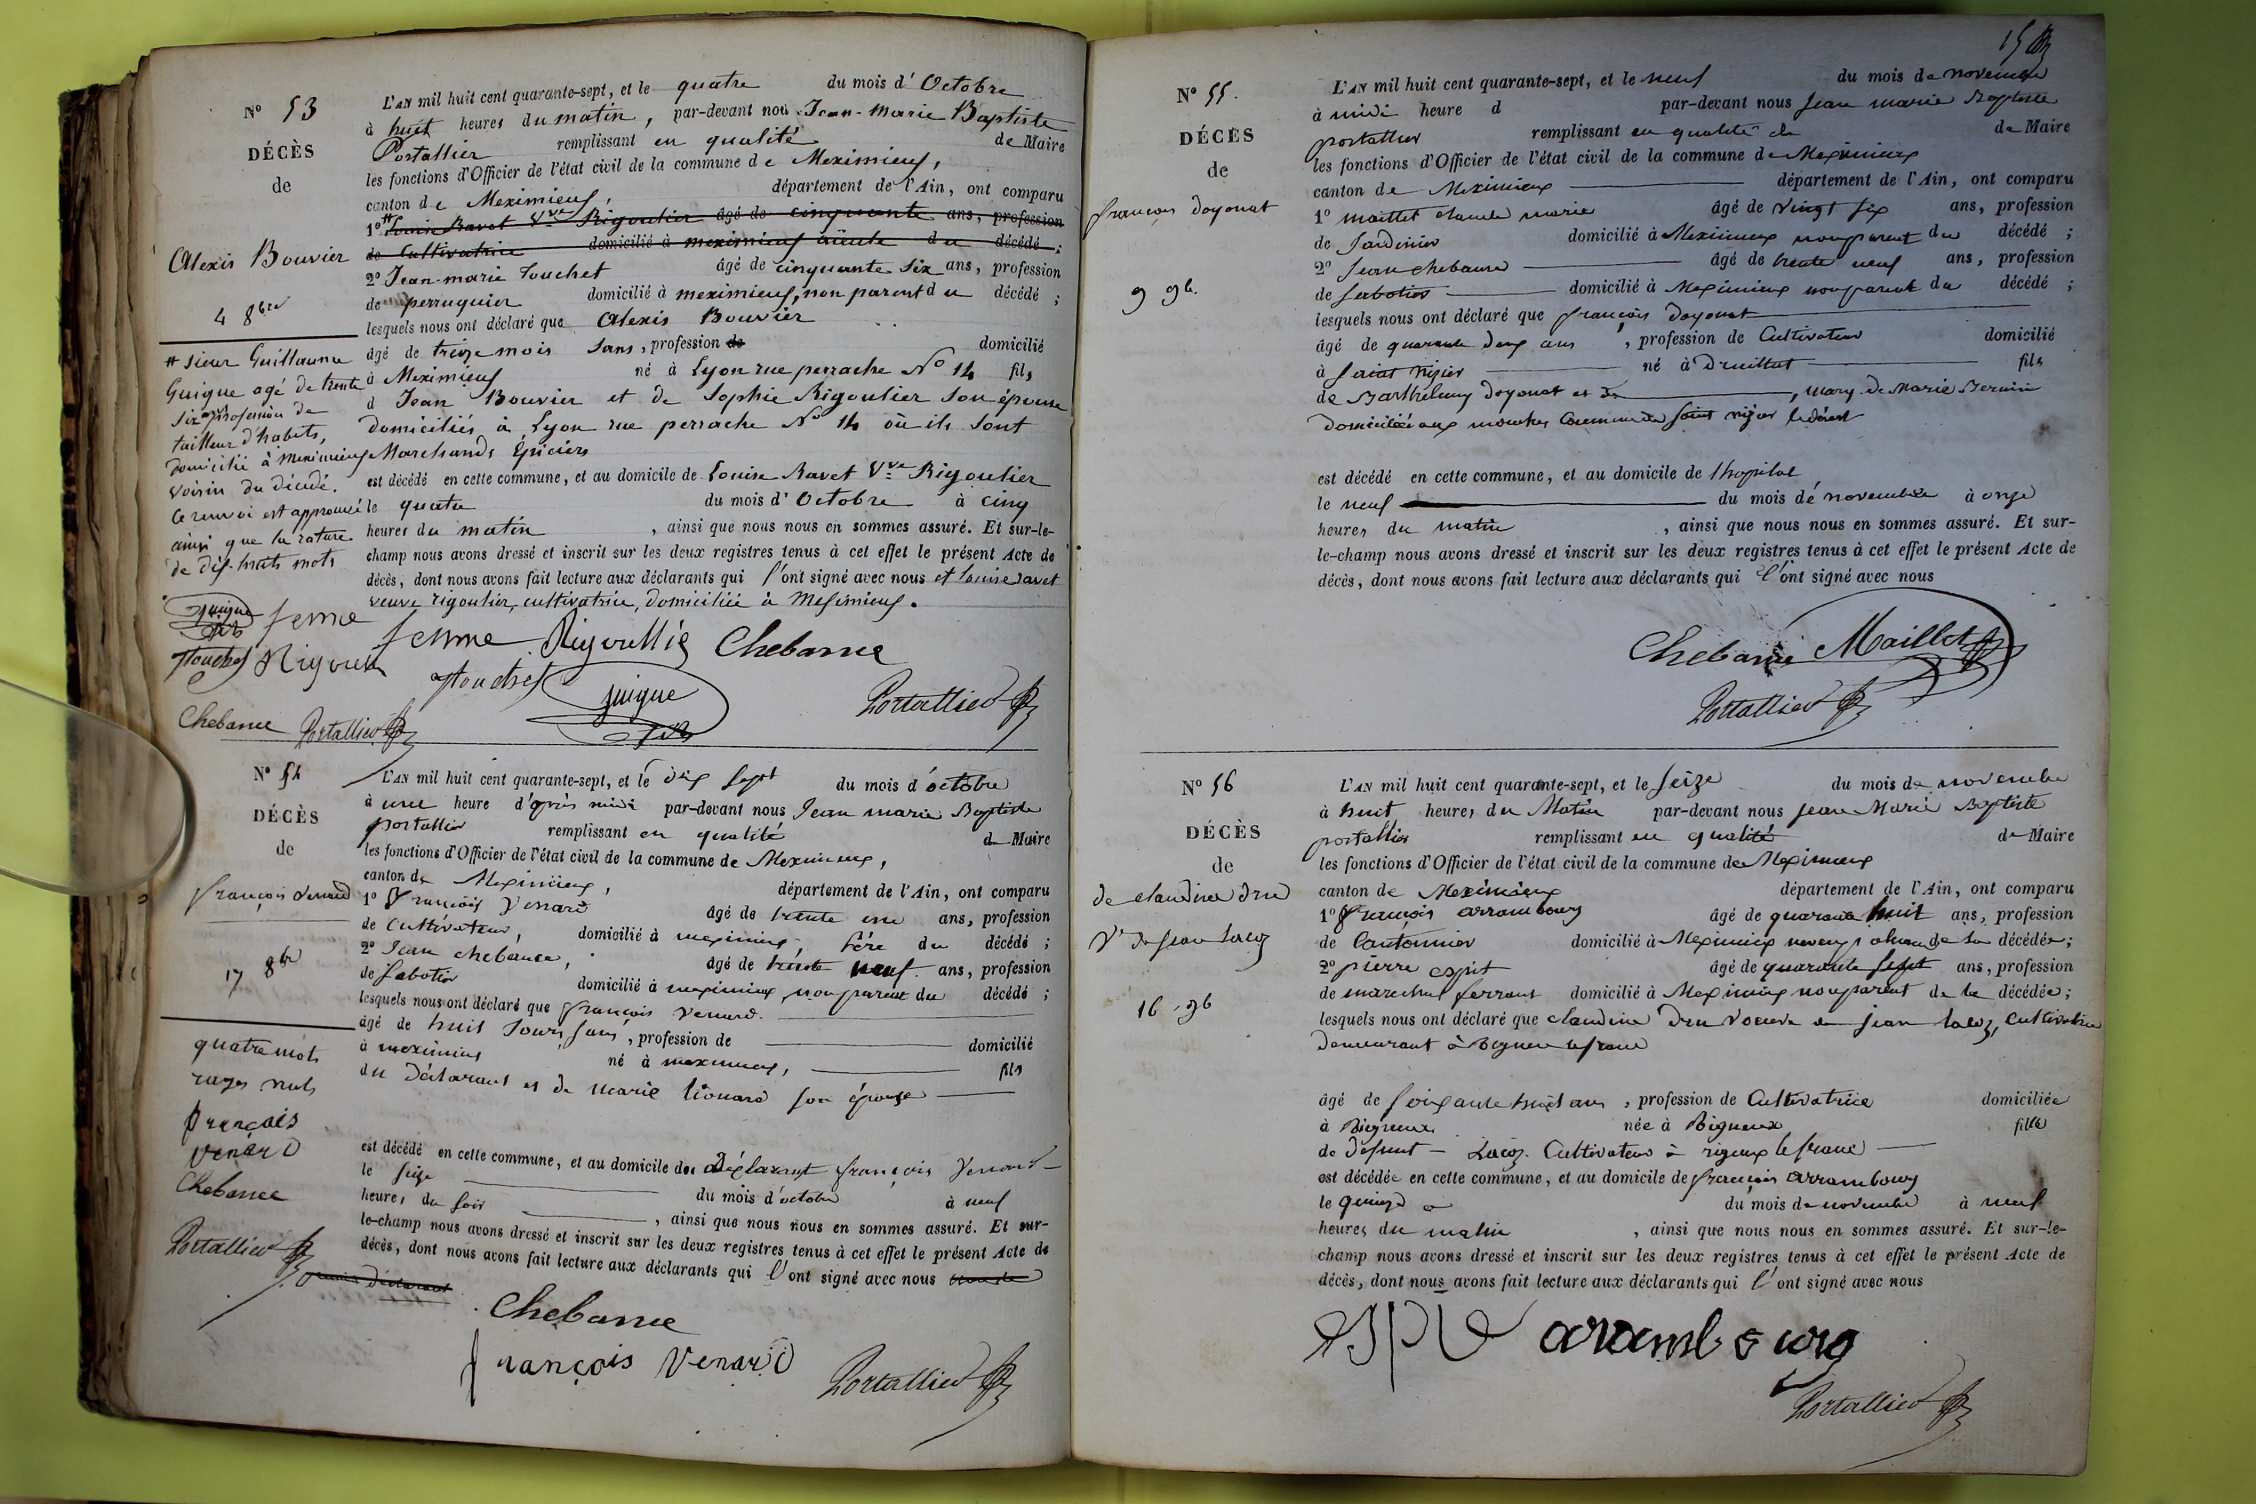 N° 53
DÉCÈS
de
Alexis Bouvier
4 8bre
# sieur Guillaume
Guigue agé de trente
six ans profession de
tailleur d'habits,
domicilié à Meximieux
voisin du décédé.
Ce renvoi est approuvé
ainsi que la rature
de dix-huit mots
guigue
femme
Touchet Rigoult
Chebance Portallier
L'AN mil huit cent quarante-sept, et le quatre du mois d'Octobre
à huit heures du matin, par-devant nous Jean-Marie Baptiste
Portallier remplissant en qualité de Maire
les fonctions d'Officier de l'état civil de la commune de Meximieux,
canton de Meximieux, département de l'Ain, ont comparu
1° # Louise Ravet Vve Rigoulier âgé de cinquante ans, profession
de Cultivatrice domicilié à meximieux aieule du décédé ;
2° Jean-marie Touchet âgé de cinquante six ans, profession
de perruquier domicilié à meximieux, non parent du décédé ;
lesquels nous ont déclaré que Alexis Bouvier
âgé de treize mois sans, profession de domicilié
à Meximieux né à Lyon rue perrache N° 14 fils
d Jean Bouvier et de Sophie Rigoulier son épouse
domiciliés à Lyon rue perrache N° 14 où ils sont
Marchands Épiciers
est décédé en cette commune, et au domicile de Louise Ravet Vve Rigoulier
le quatre du mois d'Octobre à cinq
heures du matin, ainsi que nous nous en sommes assuré. Et sur-le-
champ nous avons dressé et inscrit sur les deux registres tenus à cet effet le présent Acte de
décès, dont nous avons fait lecture aux déclarants qui l'ont signé avec nous et Louise Ravet
veuve rigoulier, cultivatrice, domiciliée à Meximieux.
femme Rigoullie Chebance
Touchet guigue Portallier
N° 54
DÉCÈS
de
françois Venard
17 8bre
quatre mots
rayes nuls
françois
venard
Chebance
Portallier
L'AN mil huit cent quarante-sept, et le dix sept du mois d'octobre
à une heure d'après midi par-devant nous Jean marie Baptiste
portallier remplissant en qualité de Maire
les fonctions d'Officier de l'état civil de la commune de Meximieux,
canton de Meximieux, département de l'Ain, ont comparu
1° François Venard âgé de trente un ans, profession
de Cultivateur, domicilié à meximieux, père du décédé ;
2° Jean chebance, âgé de trente neuf ans, profession
de Sabotier domicilié à meximieux, non parent du décédé ;
lesquels nous ont déclaré que françois Venard.
âgé de huit Jours sans, profession de domicilié
à meximieux né à meximieux, fils
du Déclarant et de marie Liouard son épouse
est décédé en cette commune, et au domicile de Déclarant françois Venard
le seize du mois d'octobre à neuf
heures du soir, ainsi que nous nous en sommes assuré. Et sur-
le-champ nous avons dressé et inscrit sur les deux registres tenus à cet effet le présent Acte de
décès, dont nous avons fait lecture aux déclarants qui l'ont signé avec nous
premier Déclarant
Chebance
françois Venard Portallier
15
N° 55.
DÉCÈS
de
françois doyonat
9 9b.
L'AN mil huit cent quarante-sept, et le neuf du mois de novembre
à midi heure d par-devant nous Jean marie Baptiste
portallier remplissant en qualité de de Maire
les fonctions d'Officier de l'état civil de la commune de Meximieux
canton de Meximieux département de l'Ain, ont comparu
1° maillet claude marie âgé de vingt six ans, profession
de Jardinier domicilié à Meximieux non parent du décédé ;
2° Jean chebance âgé de trente neuf ans, profession
de Sabotier domicilié à Meximieux non parent du décédé ;
lesquels nous ont déclaré que françois doyonat
âgé de quarante deux ans, profession de Cultivateur domicilié
à saint Nizier né à Druillat fils
de Barthelemy doyonat et de, mary de Marie Bernin
domicilié aux commune de saint nizier le désert
est décédé en cette commune, et au domicile de l'hopital
le neuf du mois de novembre à onze
heures du matin, ainsi que nous nous en sommes assuré. Et sur-
le-champ nous avons dressé et inscrit sur les deux registres tenus à cet effet le présent Acte de
décès, dont nous avons fait lecture aux déclarants qui l'ont signé avec nous
Chebance Maillet
Portallier
N° 56
DÉCÈS
de
de claudine dru
Ve de Jean Lacoz
16 . 9b
L'AN mil huit cent quarante-sept, et le seize du mois de novembre
à huit heures du Matin par-devant nous Jean Marie Baptiste
portallier remplissant en qualité de Maire
les fonctions d'Officier de l'état civil de la commune de Meximieux
canton de Meximieux département de l'Ain, ont comparu
1° François arrambourg âgé de quarante huit ans, profession
de Cantonnier domicilié à Meximieux de la décédée ;
2° pierre esprit âgé de quarante sept ans, profession
de marechal ferrant domicilié à Meximieux non parent de la décédée ;
lesquels nous ont déclaré que claudine Dru veuve de Jean Lacoz, Cultivatrice
demeurant à
âgé de soixante huit ans, profession de Cultivatrice domiciliée
à Rigneux née à Rigneux fille
de Défunt — Lacoz Cultivateur à rigneux le franc
est décédée en cette commune, et au domicile de françois arrambourg
le quinze du mois de novembre à neuf
heures du matin, ainsi que nous nous en sommes assuré. Et sur-le-
champ nous avons dressé et inscrit sur les deux registres tenus à cet effet le présent Acte de
décès, dont nous avons fait lecture aux déclarants qui l'ont signé avec nous
arambourg
Portallier